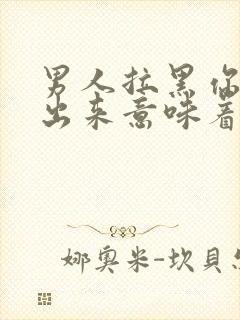 男人拉黑你
出来意味着
娜奥米-坎貝